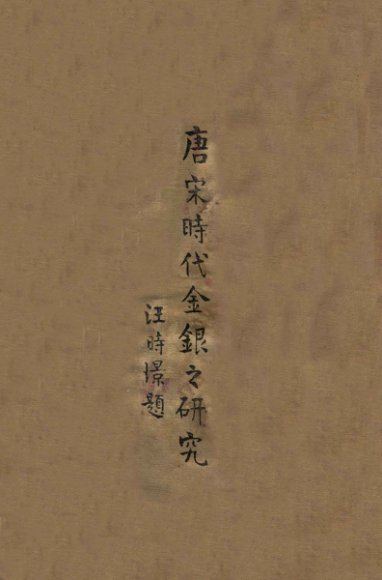 唐宋時代金銀之研究
汪時憬題